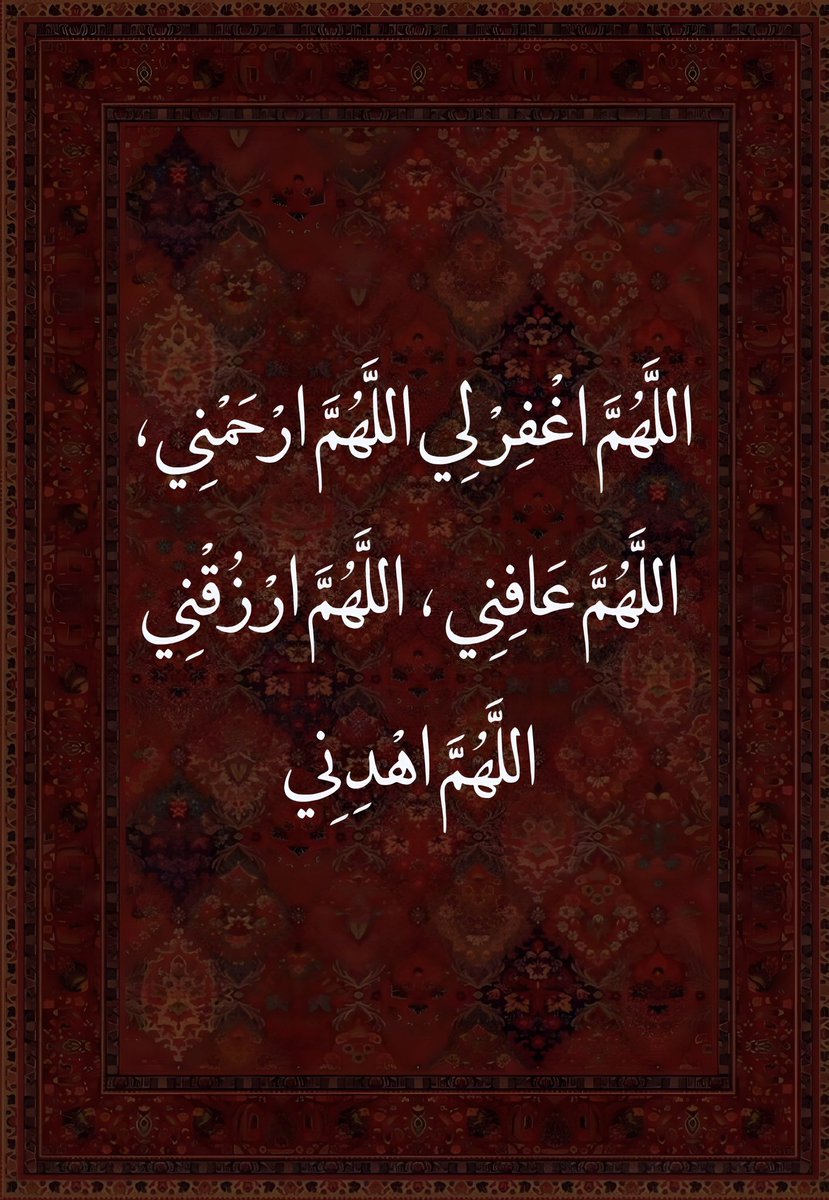 اللَّهُمَّ اغْفِرْ لِي اللَّهُمَّ ارْحَمْنِي ،
اللَّهُمَّ عَافِنِي ، اللَّهُمَّ ارْزُقْنِي
اللَّهُمَّ اهْدِنِي